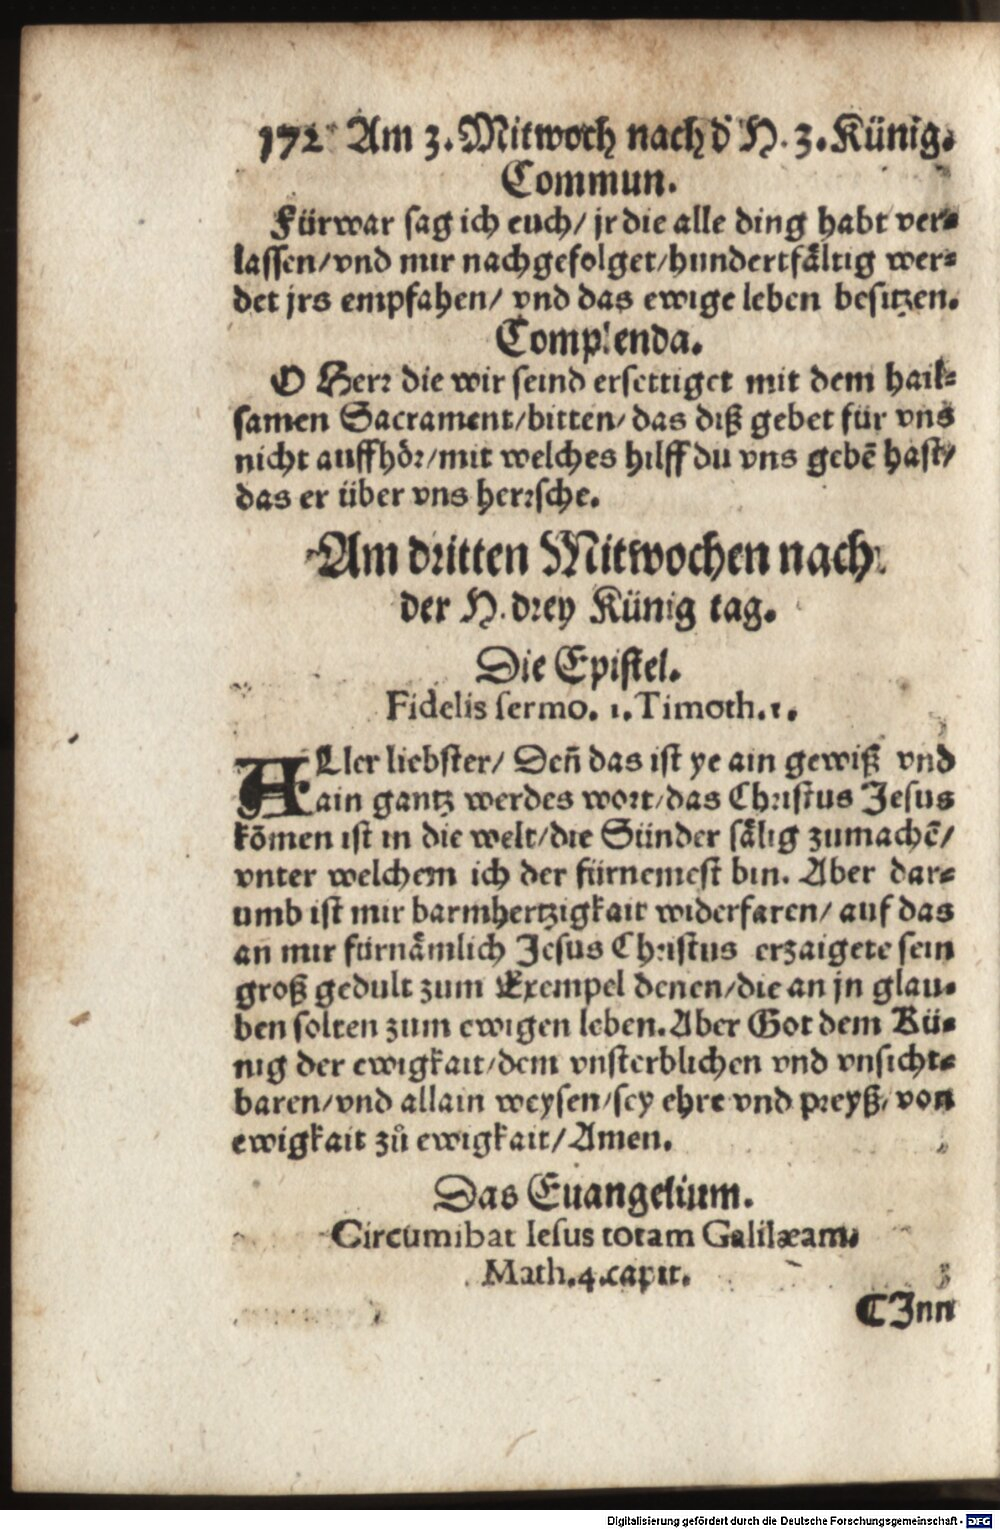 172 Am 3. Mitwoch nach d̕ H. 3. Künig.
Commun.
Fürwar sag ich euch/ jr die alle ding habt ver-
lassen/vnd mir nachgefolget/hundertfåltig wer-
det jrs empfahen/ vnd das ewige leben besitzen.
Complenda.
O Herr die wir seind ersettiget mit dem hail-
samen Sacrament/bitten/ das diß gebet für vns
nicht auffhör/mit welches hilff du vns gebē hast/
das er über vns herrsche.
Am dritten Mitwochen nach
der H. drey Künig tag.
Die Epistel.
Fidelis sermo. 1. Timoth. 1.
ALler liebster/ Deñ das ist ye ain gewiß vnd
ain gantz werdes wort/das Christus Jesus
kōmen ist in die welt/die Sünder sålig zumachē/
vnter welchem ich der fürnemest bin. Aber dar-
umb ist mir barmhertzigkait widerfaren/ auf das
an mir fürnåmlich Jesus Christus erzaigete sein
groß gedult zum Exempel denen/die an jn glau-
ben solten zum ewigen leben. Aber Got dem Kü-
nig der ewigkait/dem vnsterblichen vnd vnsicht-
baren/vnd allain weysen/sey ehre vnd preyß/ von
ewigkait zů ewigkait/Amen.
Das Euangelium.
Circumibat Iesus totam Galilæam.
Math. 4. capit.
CJnn
Digitalisierung gefördert durch die Deutsche Forschungsgemeinschaft - DFG